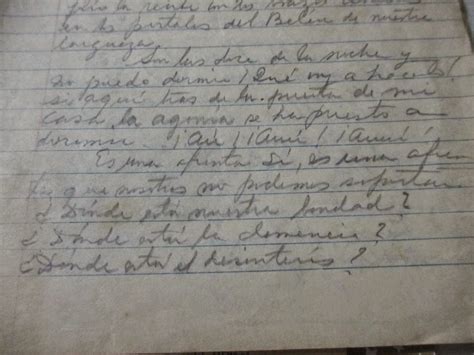 para la rente en los brazos
en los portales del Belén de nuestra
congueza.
Son las doce de la noche y
no puedo dormir ¡Qué voy a hacer!
si aquí tras de la puerta de mi
casa, la agonía se ha puesto a
dormir. ¡Aú! ¡Auú! ¡Auuú!
Es una afrenta Sí, es una afren
ta que nosotros no podemos soportar
¿Dónde está nuestra bondad?
¿Dónde está la clemencia?
¿Dónde está el desinterés?